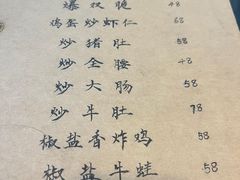 爆双脆 48
鸡蛋炒虾仁 68
炒猪肚 58
炒全腰 48
炒大肠 58
炒牛肚 78
椒盐香炸鸡 58
椒盐牛蛙 58